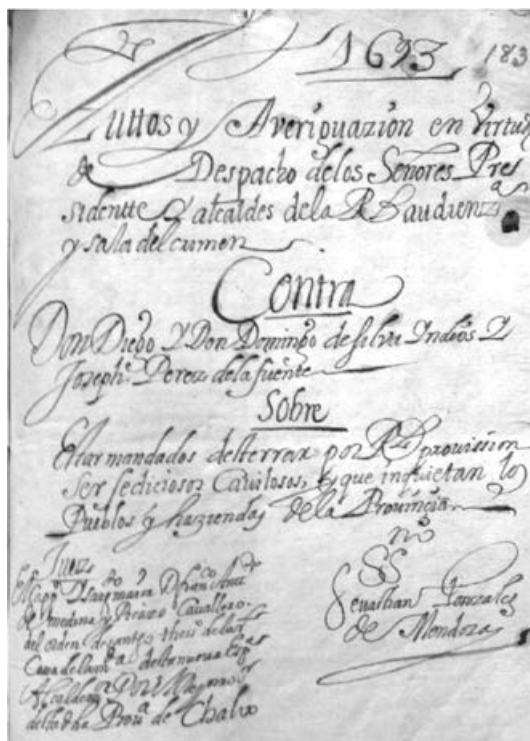 1693 183
Auttos y Averiguazion en virtud
de Despacho de los Señores Pres
sidentte y alcaldes de la Rl audienzia
y sala del crimen
Contra
Don Diego y Don Domingo de silva Yndios y
Joseph Perez de la fuente
Sobre
Estar mandados desterrar por Rl provission
Ser sediciosos Cavilosos, y que inquietan los
Pueblos y haziendas de la Provincia
Juez
de Medina y Picazo Cavallero
del orden de santigo
Cava
Alcalde Mayor
de la Prova de Chalco
SSno
Sevastian Gonzales
de Mendoza